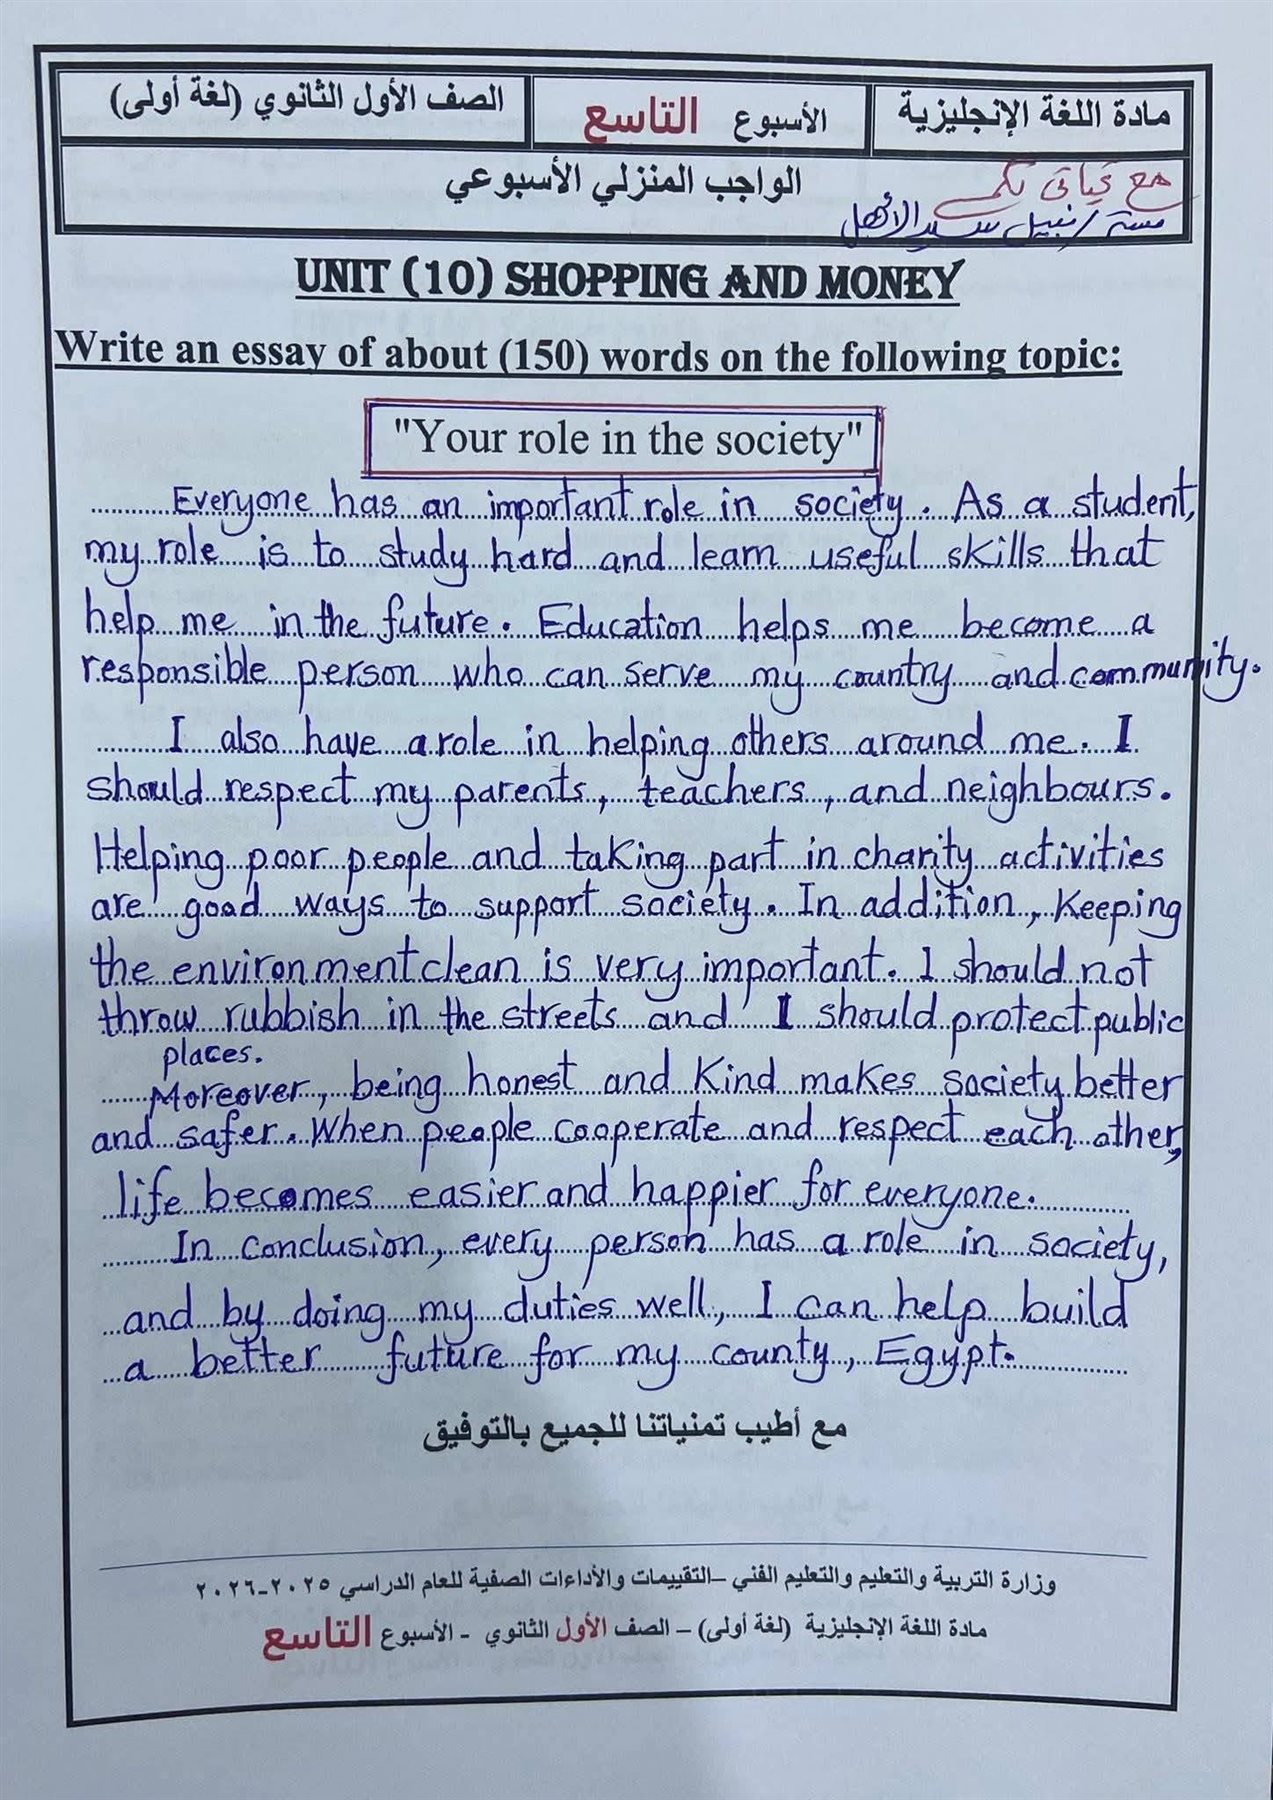 مادة اللغة الإنجليزية
الأسبوع التاسع
الصف الأول الثانوي (لغة أولى)
الواجب المنزلي الأسبوعي
مع تحياتى لكم
مستر/ نبيل سيد الأهل
UNIT (10) SHOPPING AND MONEY
Write an essay of about (150) words on the following topic:
"Your role in the society"
Everyone has an important role in society. As a student,
my role is to study hard and learn useful skills that
help me in the future. Education helps me become a
responsible person who can serve my country and community.
I also have a role in helping others around me. I
should respect my parents, teachers, and neighbours.
Helping poor people and taking part in charity activities
are good ways to support society. In addition, Keeping
the environment clean is very important. I should not
throw rubbish in the streets and I should protect public
places.
Moreover, being honest and Kind makes society better
and safer. When people cooperate and respect each other,
life becomes easier and happier for everyone.
In conclusion, every person has a role in society,
and by doing my duties well, I can help build
a better future for my county, Egypt.
مع أطيب تمنياتنا للجميع بالتوفيق
وزارة التربية والتعليم والتعليم الفني –التقييمات والأداءات الصفية للعام الدراسي ٢٠٢٥-٢٠٢٦
مادة اللغة الإنجليزية (لغة أولى) – الصف الأول الثانوي - الأسبوع التاسع